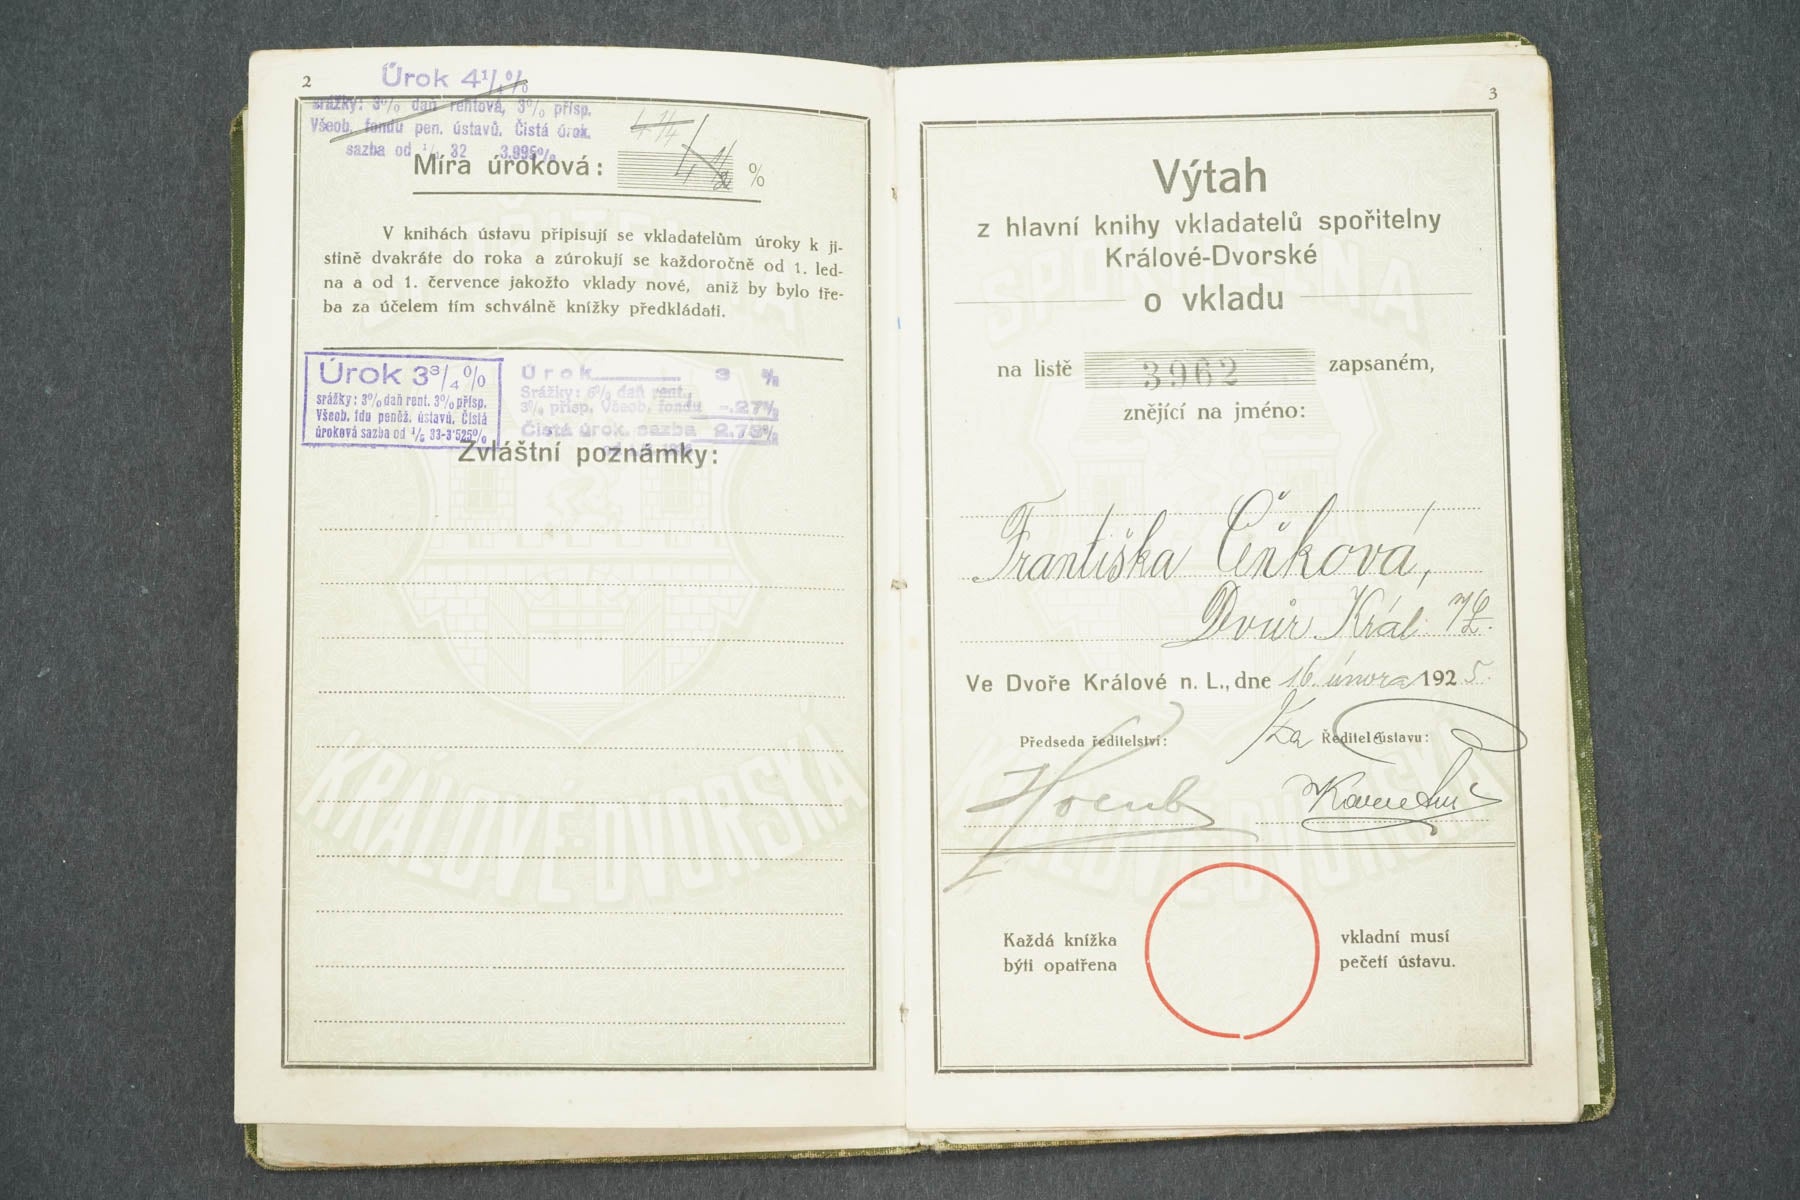 2
Úrok 4¼%
srážky: 3% daň rentová, 3% přísp.
Všeob. fondu pen. ústavů. Čistá úrok.
sazba od ¹/₁ 32 3.995%
4 ¼
Míra úroková: 4 ½ %
V knihách ústavu připisují se vkladatelům úroky k ji-
stině dvakráte do roka a zúrokují se každoročně od 1. led-
na a od 1. července jakožto vklady nové, aniž by bylo tře-
ba za účelem tím schválně knížky předkládati.
Úrok 3³/₄%
srážky: 3% daň rent. 3% přísp.
Všeob. fdu peněž. ústavů. Čistá
úroková sazba od ¹/₅ 33-3˙525%
Úrok 3 %
Srážky: 6% daň rent.,
3% přísp. Všeob. fondu -.27%
Čistá úrok. sazba 2.73%
Zvláštní poznámky:
SPOŘITELNA
KRÁLOVÉ-DVORSKÁ
3
Výtah
z hlavní knihy vkladatelů spořitelny
Králové-Dvorské
o vkladu
na listě 3962 zapsaném,
znějící na jméno:
Františka Čeňková,
Dvůr Král.
Ve Dvoře Králové n. L., dne 16. února 1925.
Předseda ředitelství:
Za Ředitel ústavu:
SPOŘITELNA
KRÁLOVÉ-DVORSKÁ
Každá knížka vkladní musí
býti opatřena pečetí ústavu.